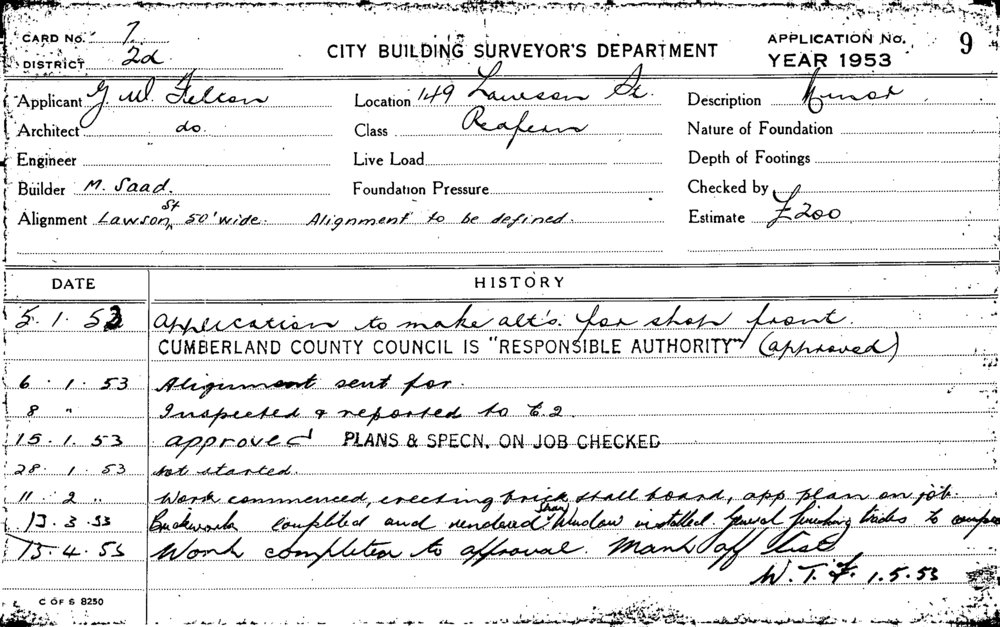 CARD No. 7
DISTRICT 2d
CITY BUILDING SURVEYOR'S DEPARTMENT
APPLICATION No. 9
YEAR 1953
Applicant G. W. Felton Location 149 Lawson St. Description Minor
Architect do. Class Redfern Nature of Foundation
Engineer Live Load Depth of Footings
Builder M. Saad. Foundation Pressure Checked by
Alignment Lawson St 50' wide. Alignment to be defined. Estimate £200
DATE HISTORY
5.1.53 Application to make alt's. for shop front.
CUMBERLAND COUNTY COUNCIL IS "RESPONSIBLE AUTHORITY" (approved)
6.1.53 Alignment sent for.
8 " Inspected & reported to C.2.
15.1.53 approved PLANS & SPECN. ON JOB CHECKED
28.1.53 Not started.
11.2 " Work commenced, erecting brick stall board, app plan on job.
13.3.53 Brickwork completed and rendered Shop Window installed. General finishing trades to
15.4.53 Work completed to approval. Mark off list
W. T. F. 1.5.53
C OF S 8250